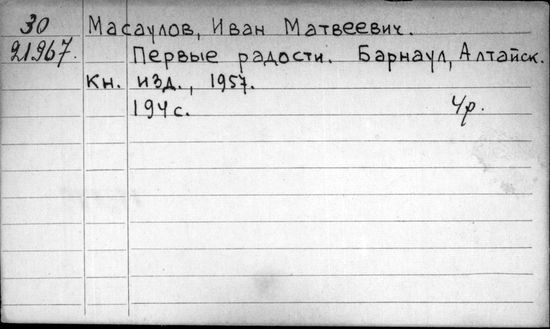 30 Масаулов, Иван Матвеевич.
21967. Первые радости. Барнаул, Алтайск.
Кн. изд., 1957.
194 с. 4р.